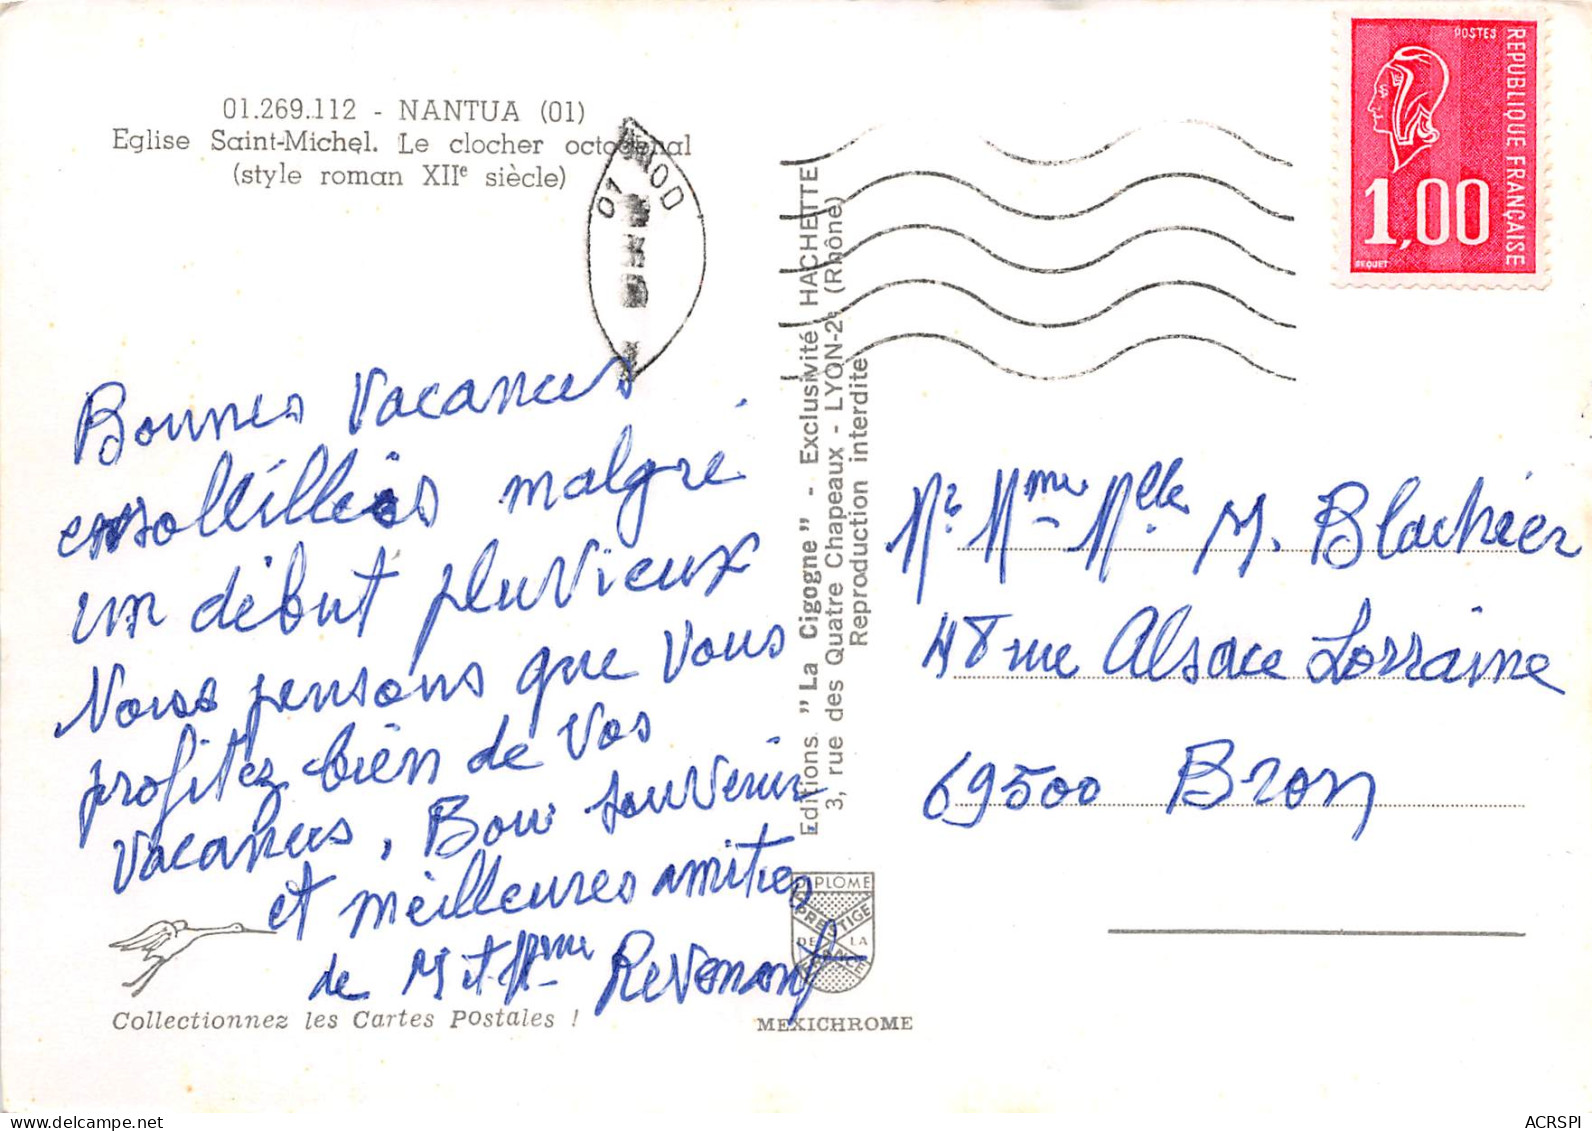 01.269.112 - NANTUA (01)
Eglise Saint-Michel. Le clocher octogonal
(style roman XIIe siècle)
01 NOD
POSTES
REPUBLIQUE FRANÇAISE
1,00
BEQUET
Bonnes Vacances
ensolleillées malgré
un début pluvieux
Nous pensons que Vous
profitez bien de Vos
Vacances, Bon souvenir
et meilleures amitiés
de M et Mme Revenant
Editions "La Cigogne" - Exclusivité HACHETTE
3, rue des Quatre Chapeaux - LYON-2e (Rhône)
Reproduction interdite
Mr Mme Melle M. Blachier
48 rue Alsace Lorraine
69500 Bron
DIPLOME
PRESTIGE
DE LA
FRANCE
Collectionnez les Cartes Postales !
MEXICHROME
ACRSPI